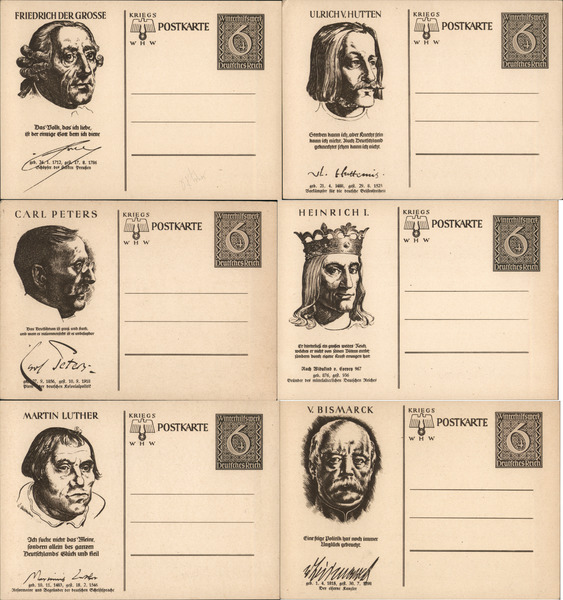 FRIEDRICH DER GROSSE
KRIEGS
WHW
POSTKARTE
Winterhilfswerk
6
Deutsches Reich
Das Volk, das ich liebe,
ist der einzige Gott dem ich diene
geb. 24. 1. 1712, gest. 17. 8. 1786
Schöpfer des Preußen
ULRICH V. HUTTEN
KRIEGS
WHW
POSTKARTE
Winterhilfswerk
6
Deutsches Reich
Sterben kann ich, aber Knecht sein
kann ich nicht. Auch Deutschland
geknechtet sehen kann ich nicht.
geb. 21. 4. 1488, gest. 29. 8. 1523
Vorkämpfer für die deutsche Geistesfreiheit
CARL PETERS
KRIEGS
WHW
POSTKARTE
Winterhilfswerk
6
Deutsches Reich
Das Deutschtum ist groß und stark,
und wenn es zusammensteht ist es unbesiegbar
Carl Peters
geb. 27. 9. 1856, gest. 10. 9. 1918
deutscher Kolonialpolitik
HEINRICH I.
KRIEGS
WHW
POSTKARTE
Winterhilfswerk
6
Deutsches Reich
Er hinterließ ein großes weites Reich,
welches er nicht von seinen Vätern ererbt,
sondern durch eigene Kraft errungen hat
Nach Widukind v. Corvey 967
geb. 876, gest. 936
Gründer des mittelalterlichen Deutschen Reiches
MARTIN LUTHER
KRIEGS
WHW
POSTKARTE
Winterhilfswerk
6
Deutsches Reich
Ich suche nicht das Meine,
sondern allein des ganzen
Deutschlands Glück und Heil
Martinus Luther
geb. 10. 11. 1483, gest. 18. 2. 1546
Reformator und Begründer der deutschen Schriftsprache
V. BISMARCK
KRIEGS
WHW
POSTKARTE
Winterhilfswerk
6
Deutsches Reich
Eine feige Politik hat noch immer
Unglück gebracht.
v Bismarck
geb. 1. 4. 1815, gest. 30. 7. 1898
Der eiserne Kanzler